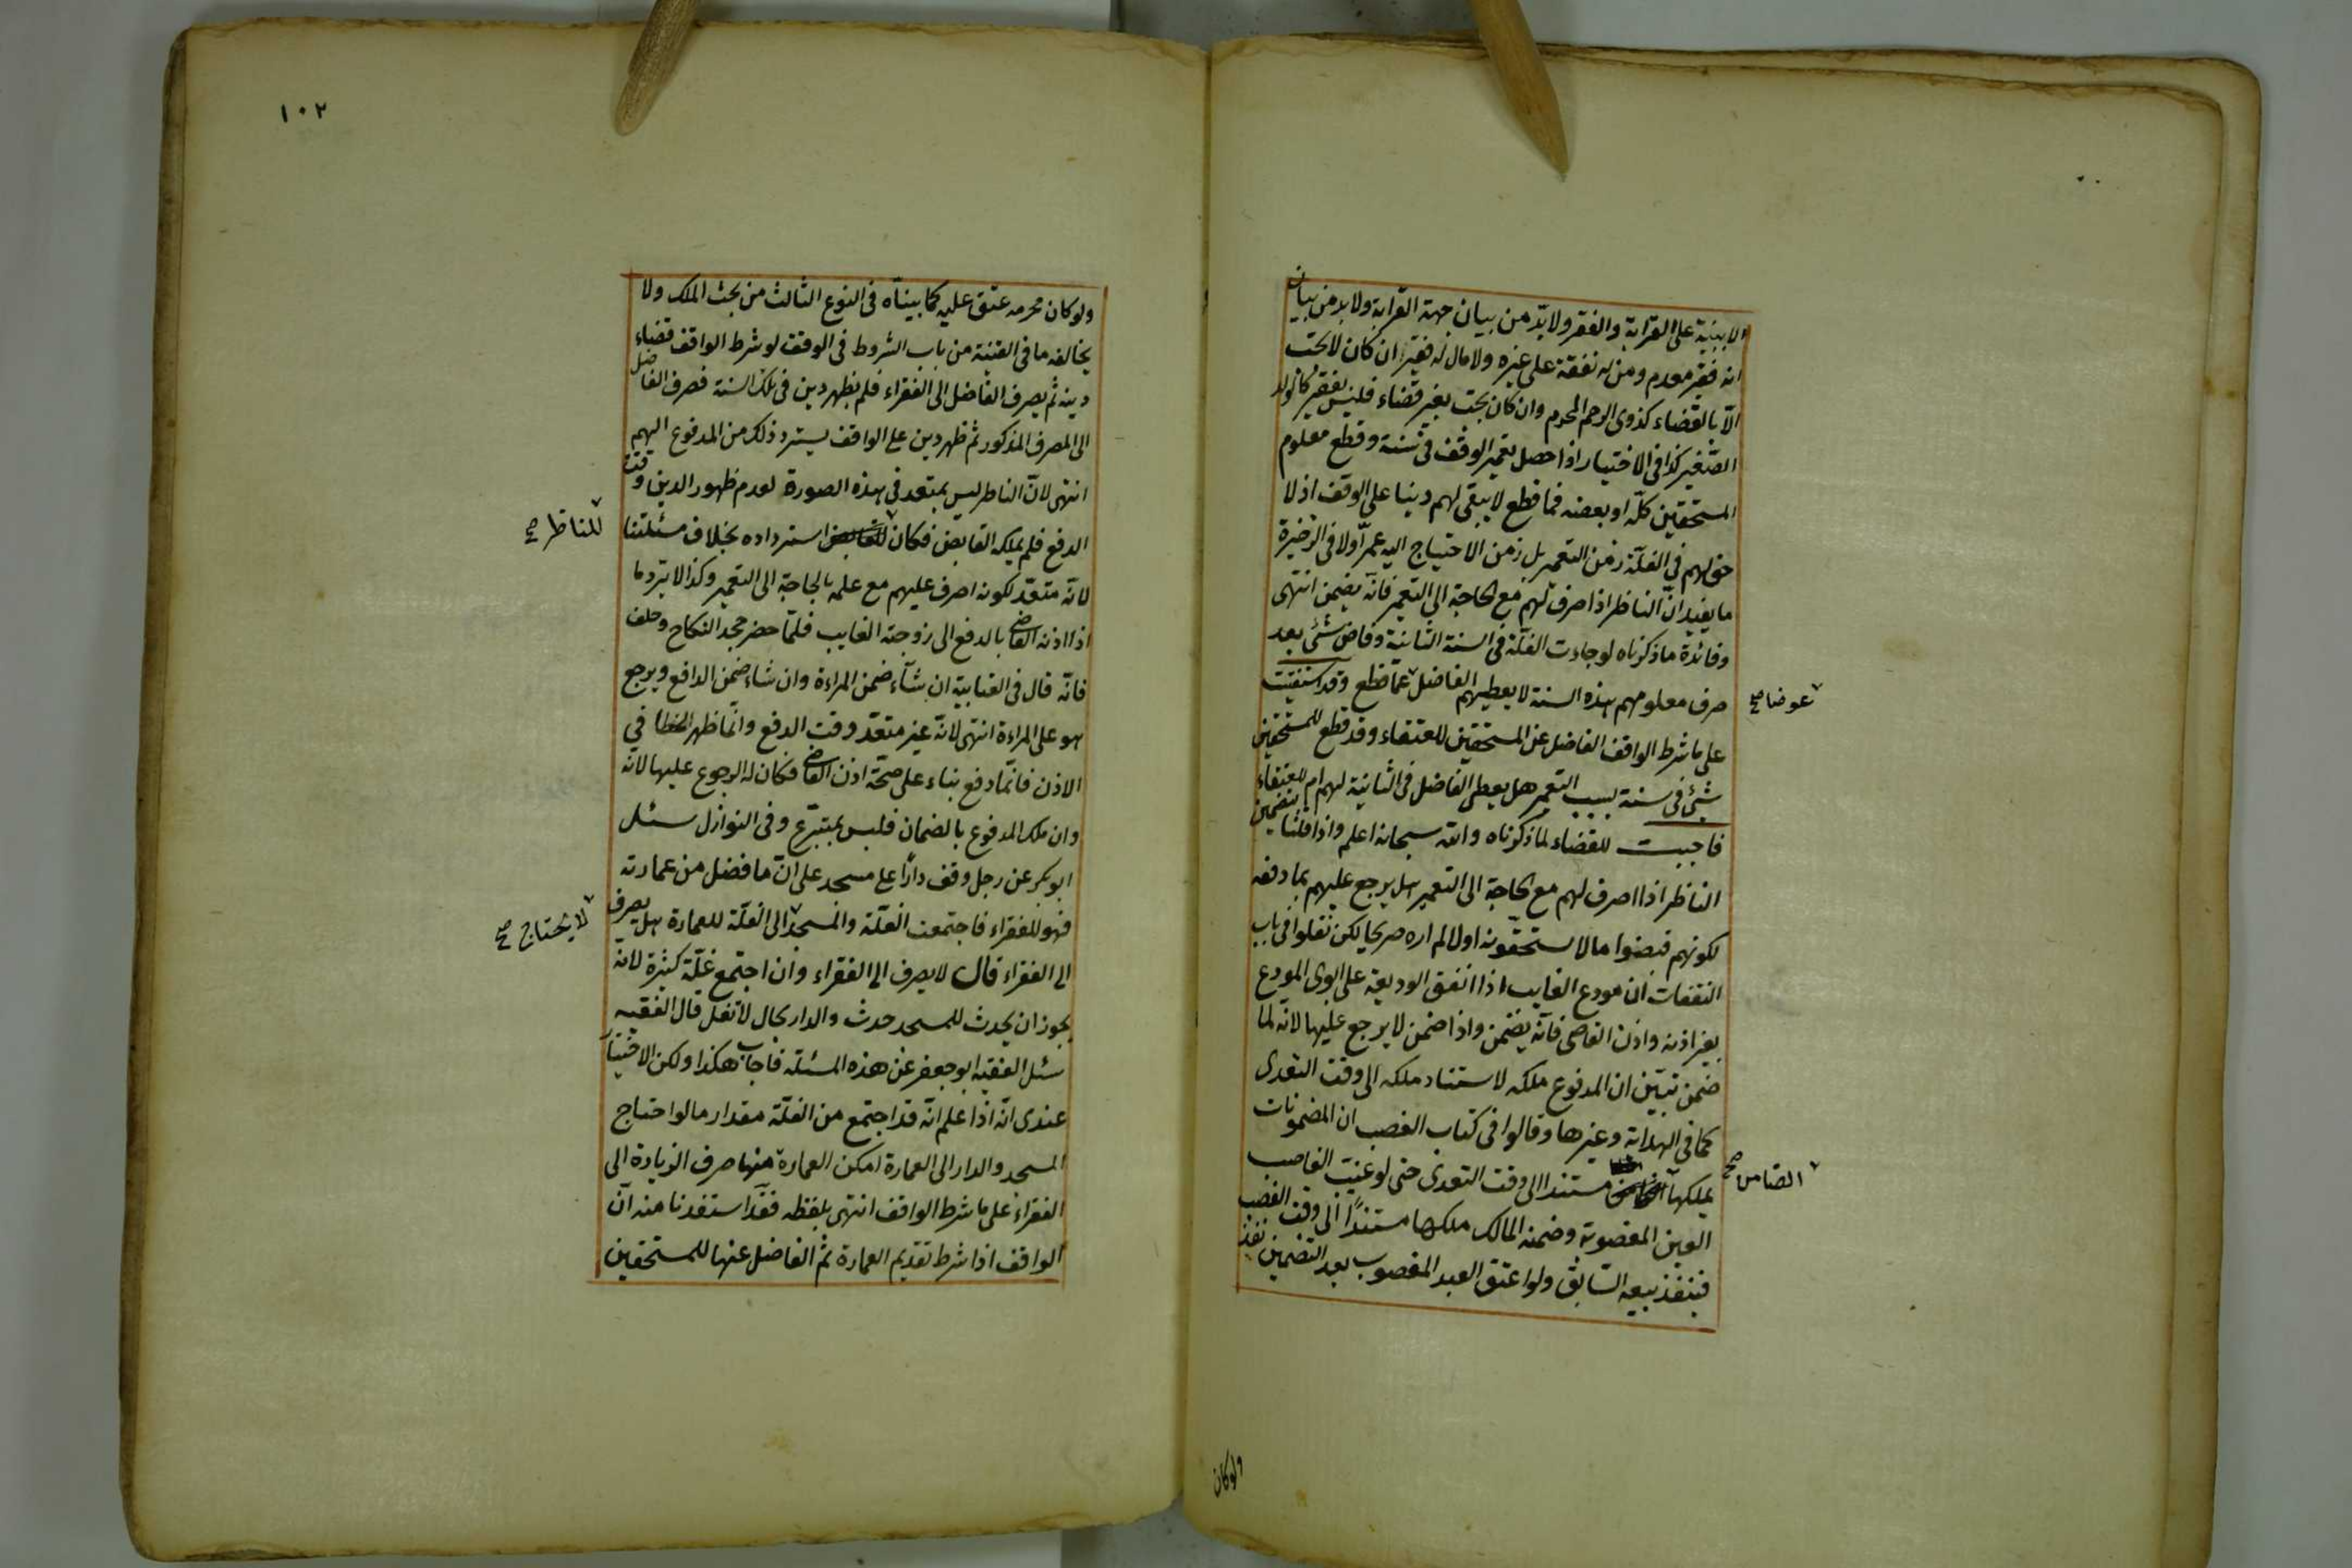 الا ببنية على القرابة والفقر ولا بدّ من بيان جهة القرابة ولا بد من بيان
انه فقير معدم ومن له نفقة على غيره ولا مال له فقير ان كان لا تجب
الّا بالقضاء كذوى الرحم المحرم وان كان تجب بغير قضاء فليس بفقير كالولد
الصّغير كذا فى الاختيار اذا حصل تعمير الوقف فى سنة وقطع معلوم
المستحقين كلّه او بعضه فما قطع لا يبقى لهم دينا على الوقف اذ لا
حق لهم فى الغلّة زمن التعمير بل زمن الاحتياج اليه عمر اولا فى الذخيرة
ما يفيد انّ الناظر اذا صرف لهم مع الحاجة الى التعمير فانه يضمن انتهى
وفائدة ما ذكرناه لو جاءت الغلّة فى السنة الثانية وفاض شئ بعد
صرف معلومهم هذه السنة لا يعطيهم الفاضل عمّا قطع وقد استفتيت
عوضا صح
على ما شرط الواقف الفاضل عن المستحقين للعتقاء وقد قطع للمستحقين
شئ فى سنة بسبب التعمير هل يعطى الفاضل فى الثانية لهم ام للعتقاء
فاجبت للقضاء لما ذكرناه والله سبحانه اعلم واذا قلنا بتضمين
الناظر اذا اصرف لهم مع الحاجة الى التعمير هل يرجع عليهم بما دفعه
لكونهم قبضوا مالا يستحقونه اولا لم اره صريحا لكن نقلوا فى باب
النفقات ان مودع الغايب اذا انفق الوديعة على ابوى المودع
بغير اذنه واذن القاضى فانّه يضمن واذا ضمن لا يرجع عليها لانه لما
ضمن تبيّن ان المدفوع ملكه لاستناد ملكه الى وقت التعدى
كما فى الهداية وغيرها وقالوا فى كتاب الغصب ان المضمونات
يملكها مستندا الى وقت التعدى حتى لو غيّب الغاصب
الضامن صح
العين المغصوبة وضمنه المالك ملكها مستندًا الى وقت الغصب
فينفذ بيعه السّابق ولو اعتق العبد المغصوب بعد التضمين نفذ
ولو كان
١٠٢
ولو كان محرمه عتق عليه كما بينّاه فى النوع الثالث من بحث الملك ولا
يخالفه ما فى القنية من باب الشروط فى الوقف لو شرط الواقف قضاء
دينه ثم يصرف الفاضل الى الفقراء فلم يظهر دين فى تلك السنة فصرف الفاضل
الى المصرف المذكور ثم ظهر دين على الواقف يسترد ذلك من المدفوع اليهم
انتهى لانّ الناظر ليس بمتعد فى هذه الصورة لعدم ظهور الدين وقت
الدفع فلم يملكه القابض فكان للقابض استرداده بخلاف مسئلتنا
للناظر صح
لانّه متعدّ لكونه اصرف عليهم مع علمه بالحاجة الى التعمير وكذا لا يرد ما
اذا اذنه القاضى بالدفع الى زوجة الغايب فلمّا حضر جحد النكاح وحلف
فانّه قال فى العتابية ان شآء ضمن المراءة وان شاء ضمن الدافع ويرجع
هو على المراءة انتهى لانّه غير متعدّ وقت الدفع وانّما ظهر الخطا فى
الاذن فانّما دفع بناء على صحّة اذن القاضى فكان له الرجوع عليها لانه
وان ملك المدفوع بالضمان فليس بمتبرّع وفى النوازل سئل
ابو بكر عن رجل وقف دارًا على مسجد على انّ ما فضل من عمارته
فهو للفقراء فاجتمعت الغلّة والمسجد الى الغلّة للعمارة هل يصرف
لا يحتاج صح
الى الفقراء قال لا يصرف الى الفقراء وان اجتمع غلّة كثيرة لانه
يجوز ان يحدث للمسجد حدث والدار بحال لا تغل قال الفقيه
سئل الفقيه ابو جعفر عن هذه المسئلة فاجاب هكذا ولكن الاختيار
عندى انّه اذا علم انّه قد اجتمع من الغلّة مقدار ما لو احتاج
المسجد والدار الى العمارة امكن العمارة منها صرف الزيادة الى
الفقراء على ما شرط الواقف انتهى بلفظه فقد استفدنا منه ان
الواقف اذا شرط تقديم العمارة ثم الفاضل عنها للمستحقين